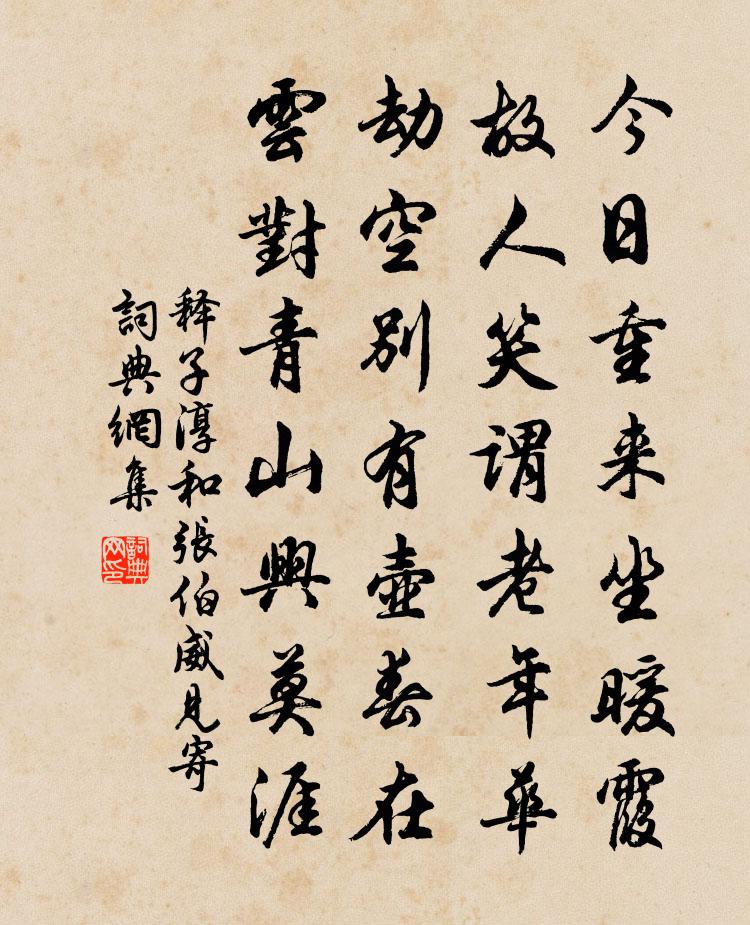 今日重来坐暖霞
故人笑谓老年華
劫空别有壺春在
雲對青山興莫涯
释子淳和張伯威見寄
詞典網集
詞典网印